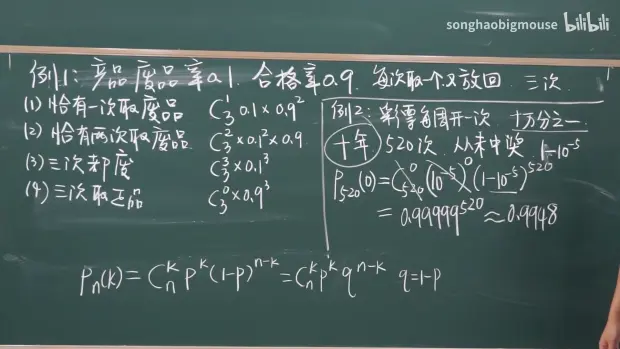 songhaobigmouse bilibili
例1: 产品废品率0.1 合格率0.9. 每次取一个又放回 三次
(1) 恰有一次取废品 C₃¹ 0.1×0.9²
(2) 恰有两次取废品 C₃²×0.1²×0.9
(3) 三次都废 C₃³×0.1³
(4) 三次取正品 C₃⁰×0.9³
例2: 彩票每周开一次 十万分之一
十年 520次 从未中奖 1-10⁻⁵
P₅₂₀(0)=C₅₂₀⁰(10⁻⁵)⁰(1-10⁻⁵)⁵²⁰
=0.99999⁵²⁰≈0.9948
Pₙ(k)=Cₙᵏ pᵏ(1-p)ⁿ⁻ᵏ=Cₙᵏpᵏqⁿ⁻ᵏ q=1-p